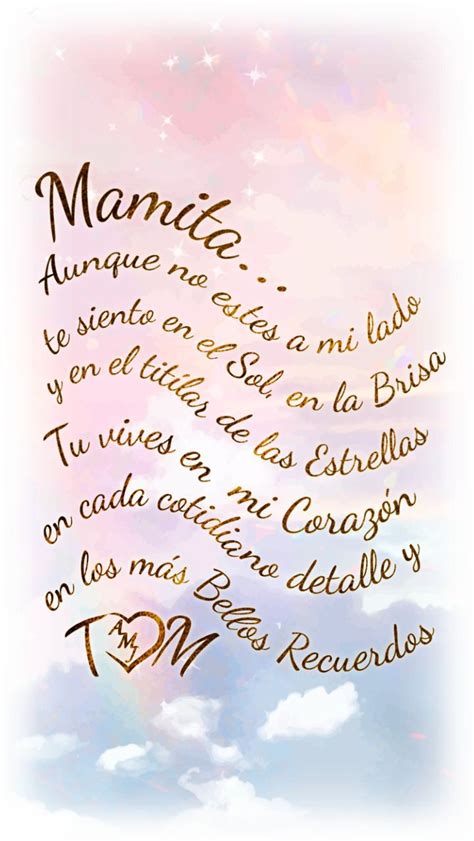 Mamita...
Aunque no estes a mi lado
te siento en el Sol, en la Brisa
y en el titílar de las Estrellas
Tu vives en mi Corazón
en cada cotidiano detalle y
en los más Bellos Recuerdos
T AMI M